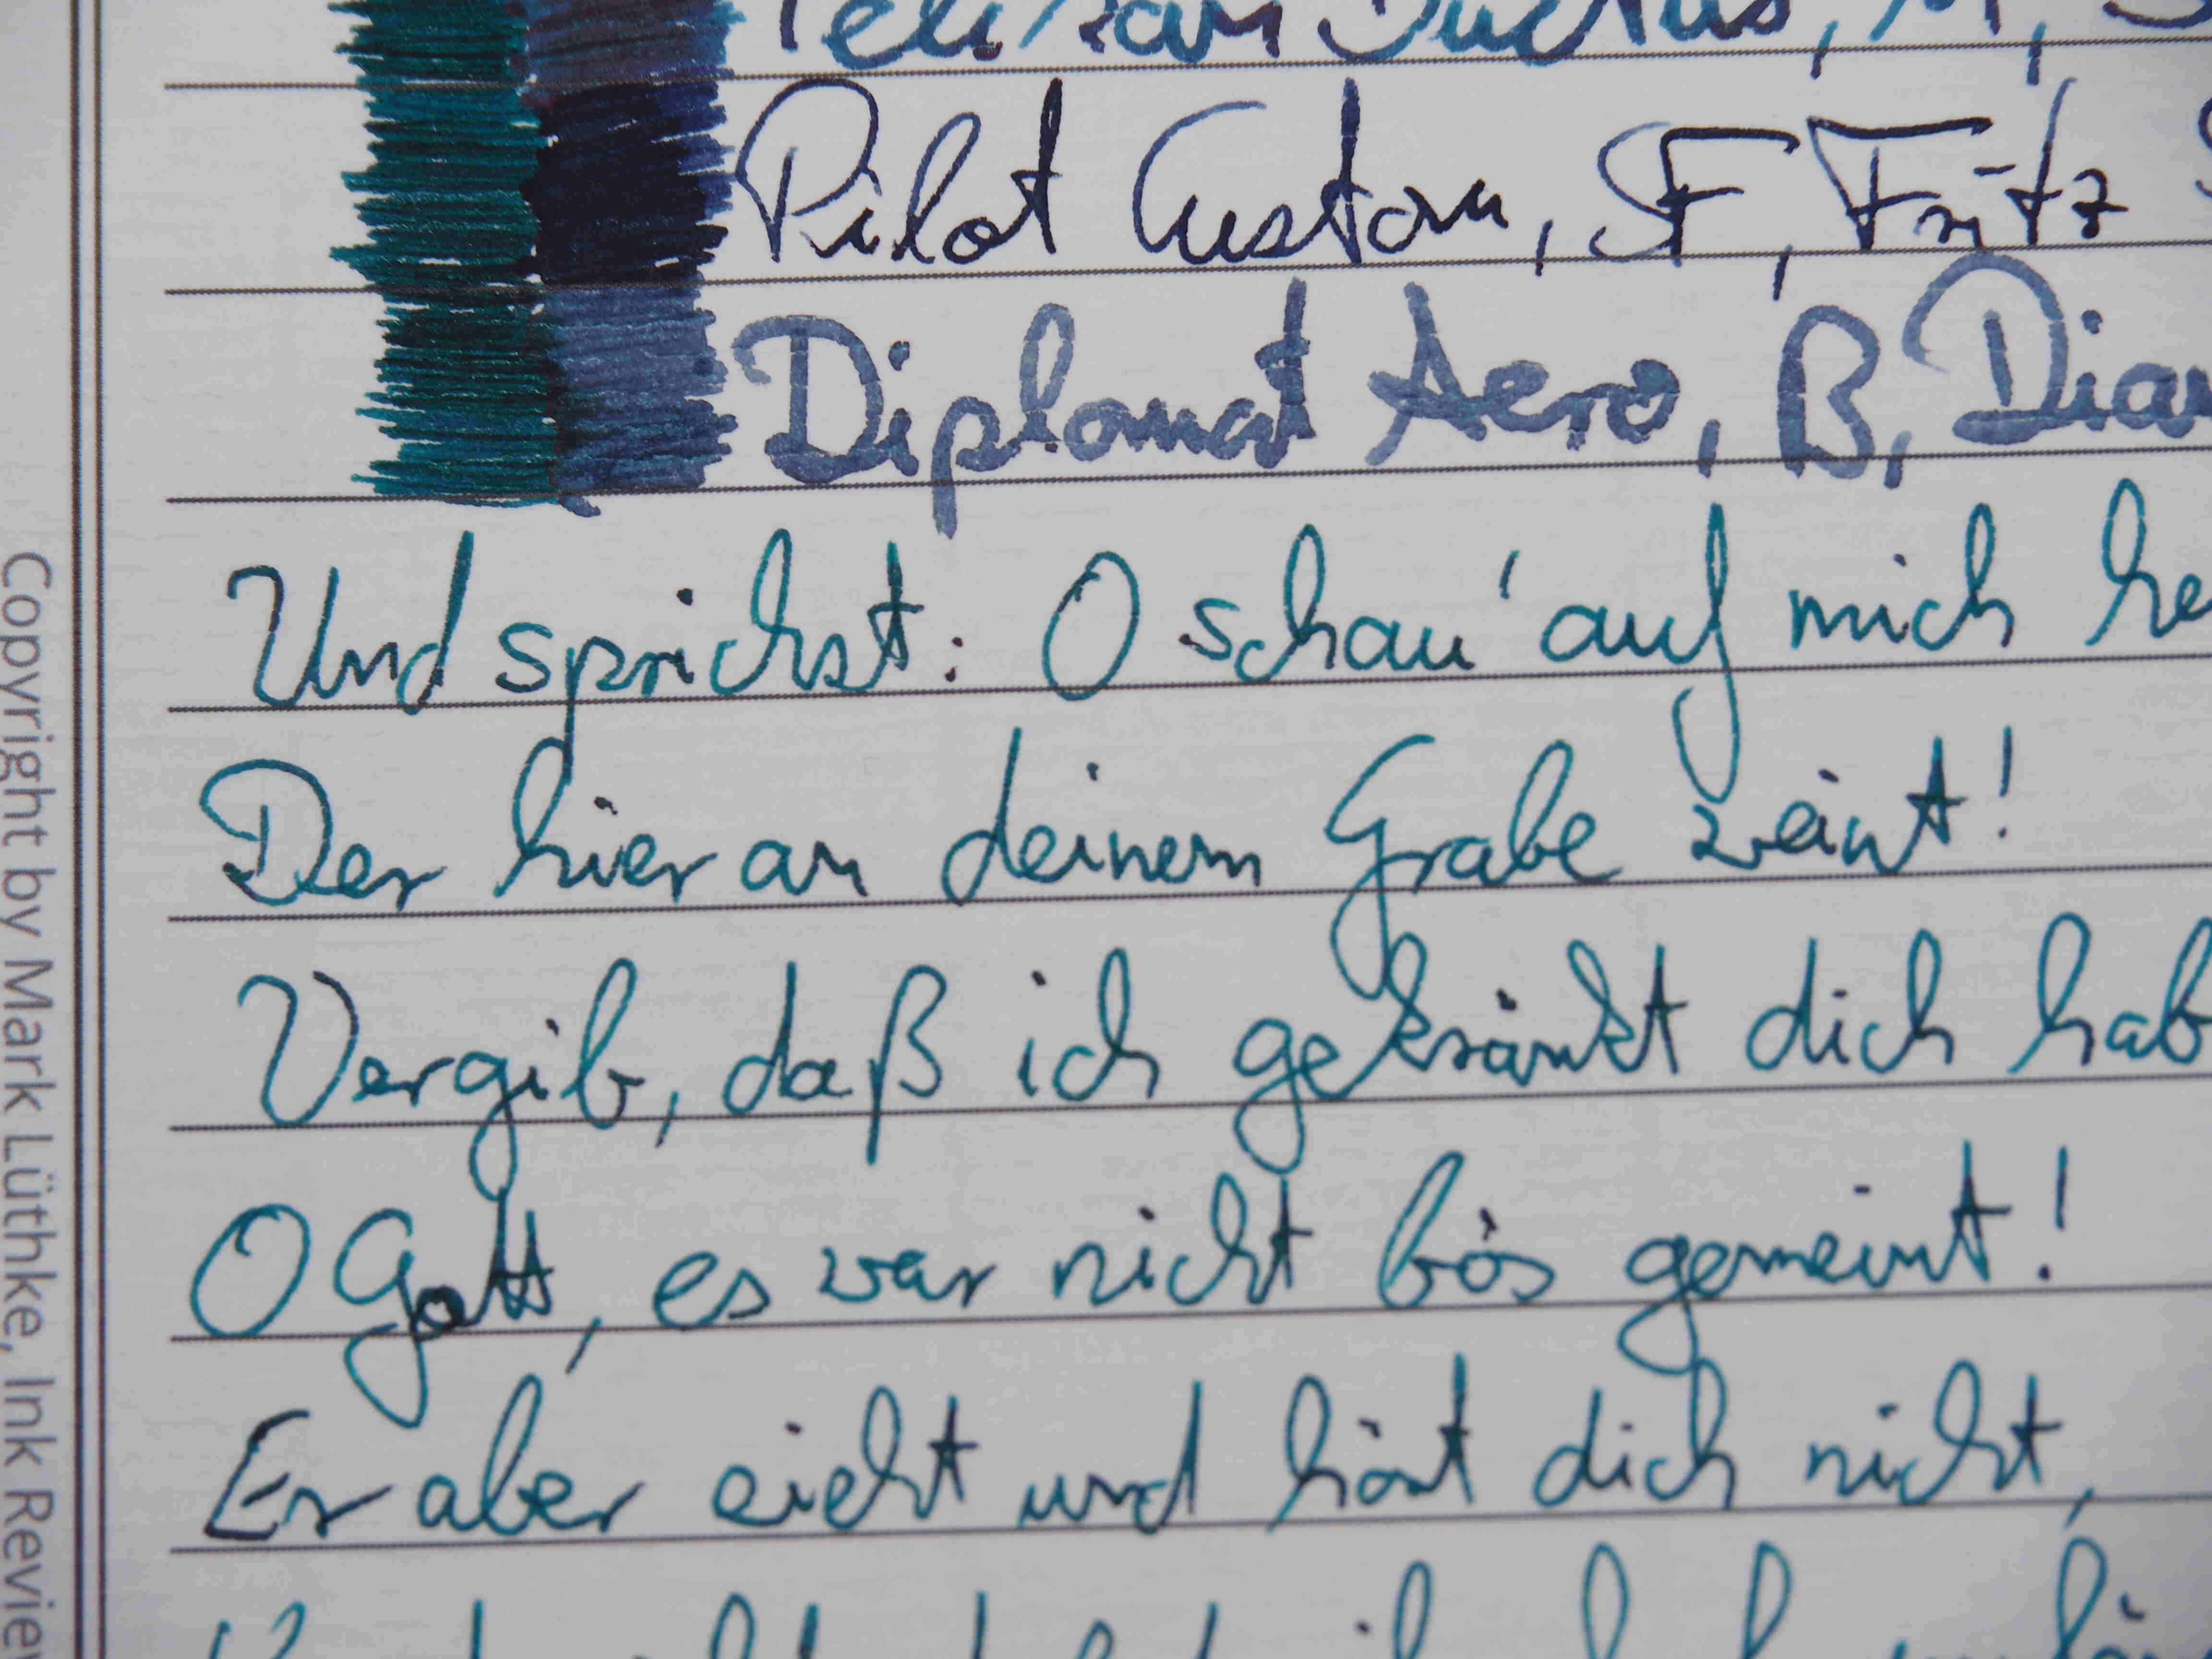 Pelikan Ductus, M,
Pilot Custom, SF, Fritz
Diplomat Aero, B,
Und sprichst: O schau' auf mich
Der hier an deinem Grabe weint!
Vergib, daß ich gekränkt dich hab
O Gott, es war nicht bös gemeint!
Er aber sieht und hört dich nicht,
Copyright by Mark Lüthke, Ink Review